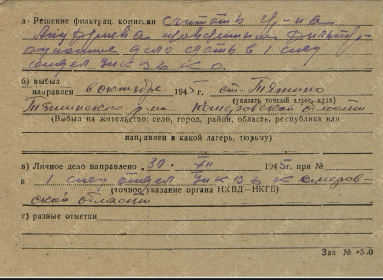 а) Решение фильтрац. комисии считать гр-на
Ануфриева проверенным фильтр-
ационное дело сдать в 1 спец
отдел УНКВД К.О.
б) выбыл
направлен 6 октября 1945 г. ст. Тяжино
(указать точный адрес, куда)
Тяжинского р-на Кемеровской области
(Выбыл на жительство: село, город, район, область, республика или
направлен в какой лагерь, тюрьму)
в) Личное дело направлено 30. XII 1945г. при №
в 1 спец отдел УНКВД Кемеров-
(точное указание органа НКВД—НКГБ)
ской области
г) разные отметки
Зак №